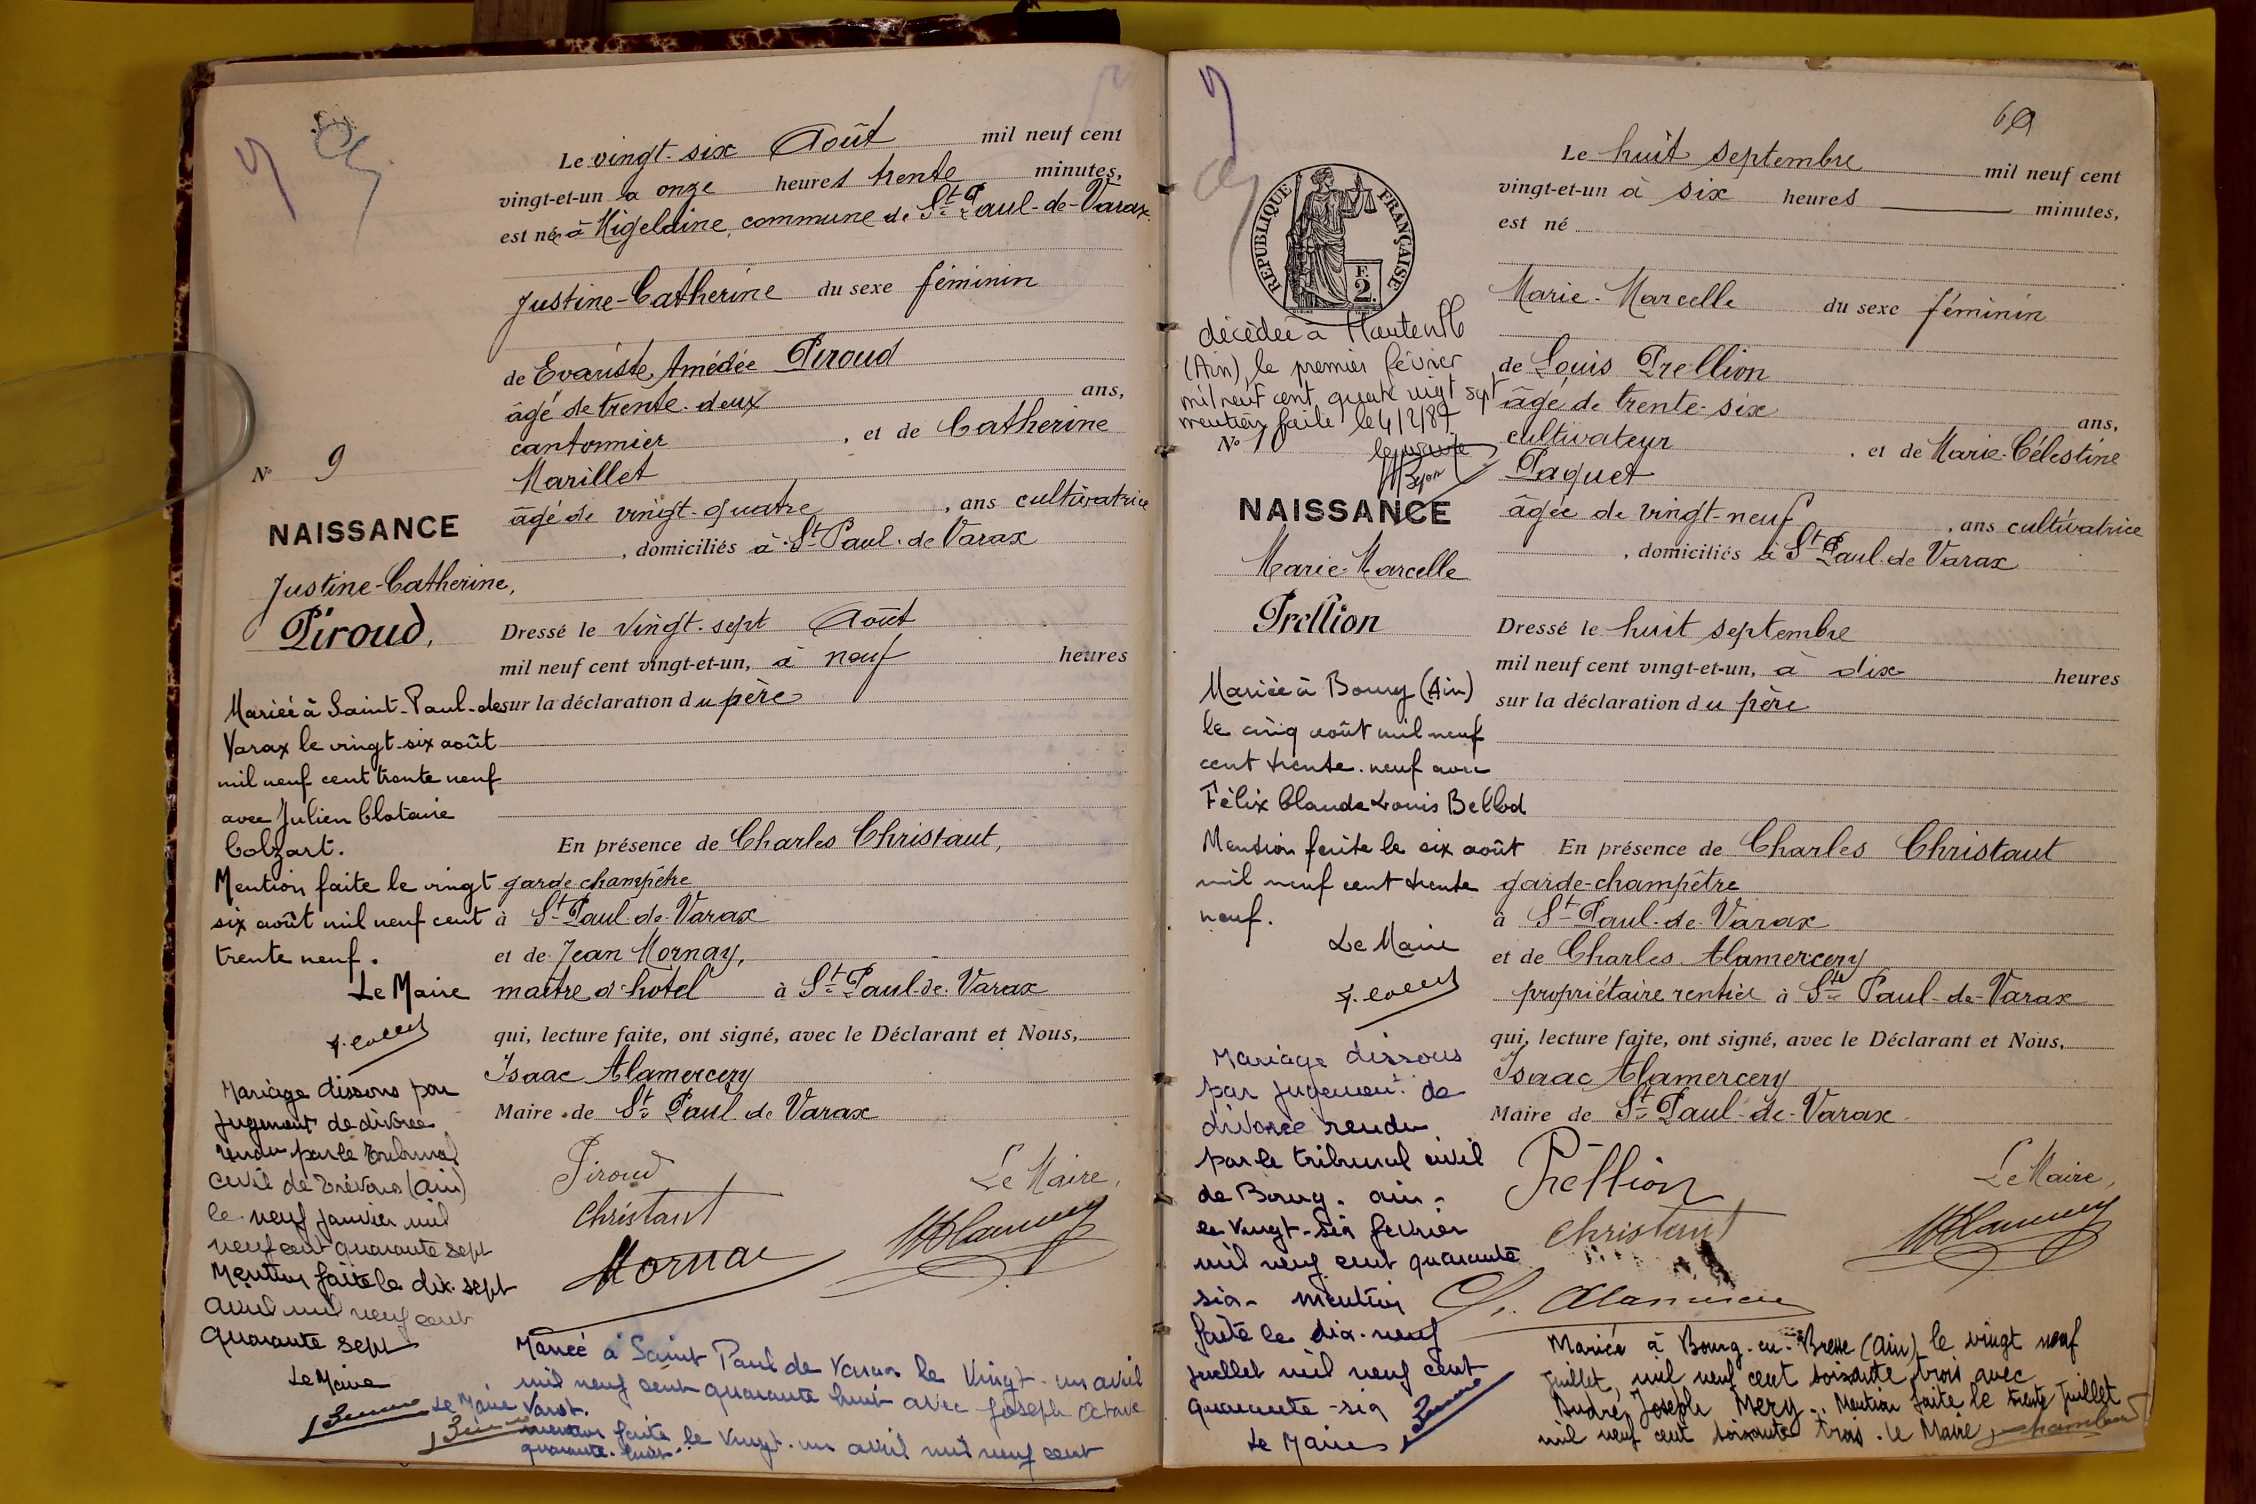 Le vingt-six Août mil neuf cent
vingt-et-un à onze heures trente minutes,
est née à Migelaine, commune de St Paul-de-Varax
Justine-Catherine du sexe féminin
de Evariste, Amédée Piroud
âgé de trente-deux ans,
cantonnier, et de Catherine
Marillet
âgé de vingt-quatre, ans cultivatrice
, domiciliés à St Paul-de Varax
N° 9
NAISSANCE
Justine-Catherine,
Piroud,
Dressé le vingt-sept Août
mil neuf cent vingt-et-un, à neuf heures
sur la déclaration du père
En présence de Charles Christaut,
garde champêtre
à St Paul-de-Varax
et de Jean Mornay,
maître d'hôtel à St Paul-de-Varax
qui, lecture faite, ont signé, avec le Déclarant et Nous,
Isaac Alamercery
Maire de St Paul de Varax
Piroud
Le Maire,
Christaut
Mornay
Mariée à Saint-Paul-de
Varax le vingt-six août
mil neuf cent trente neuf
avec Julien Clotaire
Colzart.
Mention faite le vingt
six août mil neuf cent
trente neuf.
Le Maire
Mariage dissous par
jugement de divorce
rendu par le Tribunal
civil de Trévoux (Ain)
le neuf janvier mil
neuf cent quarante sept
Mention faite le dix-sept
avril mil neuf cent
quarante sept
Le Maire
Mariée à Saint Paul de Varax le Vingt-un avril
mil neuf cent quarante huit avec Joseph Octave
Varot.
Mention faite le Vingt-un avril mil neuf cent
quarante-huit.
Le Maire
60
Le huit septembre mil neuf cent
vingt-et-un à six heures minutes,
est né
Marie-Marcelle du sexe féminin
de Louis Prellion
âgé de trente-six ans,
cultivateur, et de Marie-Célestine
Paquet
âgée de vingt-neuf, ans cultivatrice
, domiciliés à St Paul-de Varax
RÉPUBLIQUE FRANÇAISE
F.
2.
décédée à Hauteville
(Ain), le premier février
mil neuf cent quatre vingt sept
mention faite le 4/2/87
N° 10
NAISSANCE
Marie-Marcelle
Prellion
Dressé le huit septembre
mil neuf cent vingt-et-un, à dix heures
sur la déclaration du père
En présence de Charles Christaut
garde-champêtre
à St Paul-de-Varax
et de Charles Alamercery
propriétaire rentier à St Paul-de-Varax
qui, lecture faite, ont signé, avec le Déclarant et Nous,
Isaac Alamercery
Maire de St Paul-de-Varax
Prellion
Le Maire,
Christaut
Mariée à Bourg (Ain)
le cinq août mil neuf
cent trente-neuf avec
Félix Claude Louis Bellod
Mention faite le six août
mil neuf cent trente
neuf.
Le Maire
Mariage dissous
par jugement de
divorce rendu
par le tribunal civil
de Bourg-Ain-
le vingt-six février
mil neuf cent quarante
six- mention
faite le dix-neuf
juillet mil neuf cent
quarante-six
Le Maire
Mariée à Bourg-en-Bresse (Ain) le vingt neuf
juillet, mil neuf cent soixante trois avec
André Joseph Mery. Mention faite le trente juillet
mil neuf cent soixante trois. Le Maire